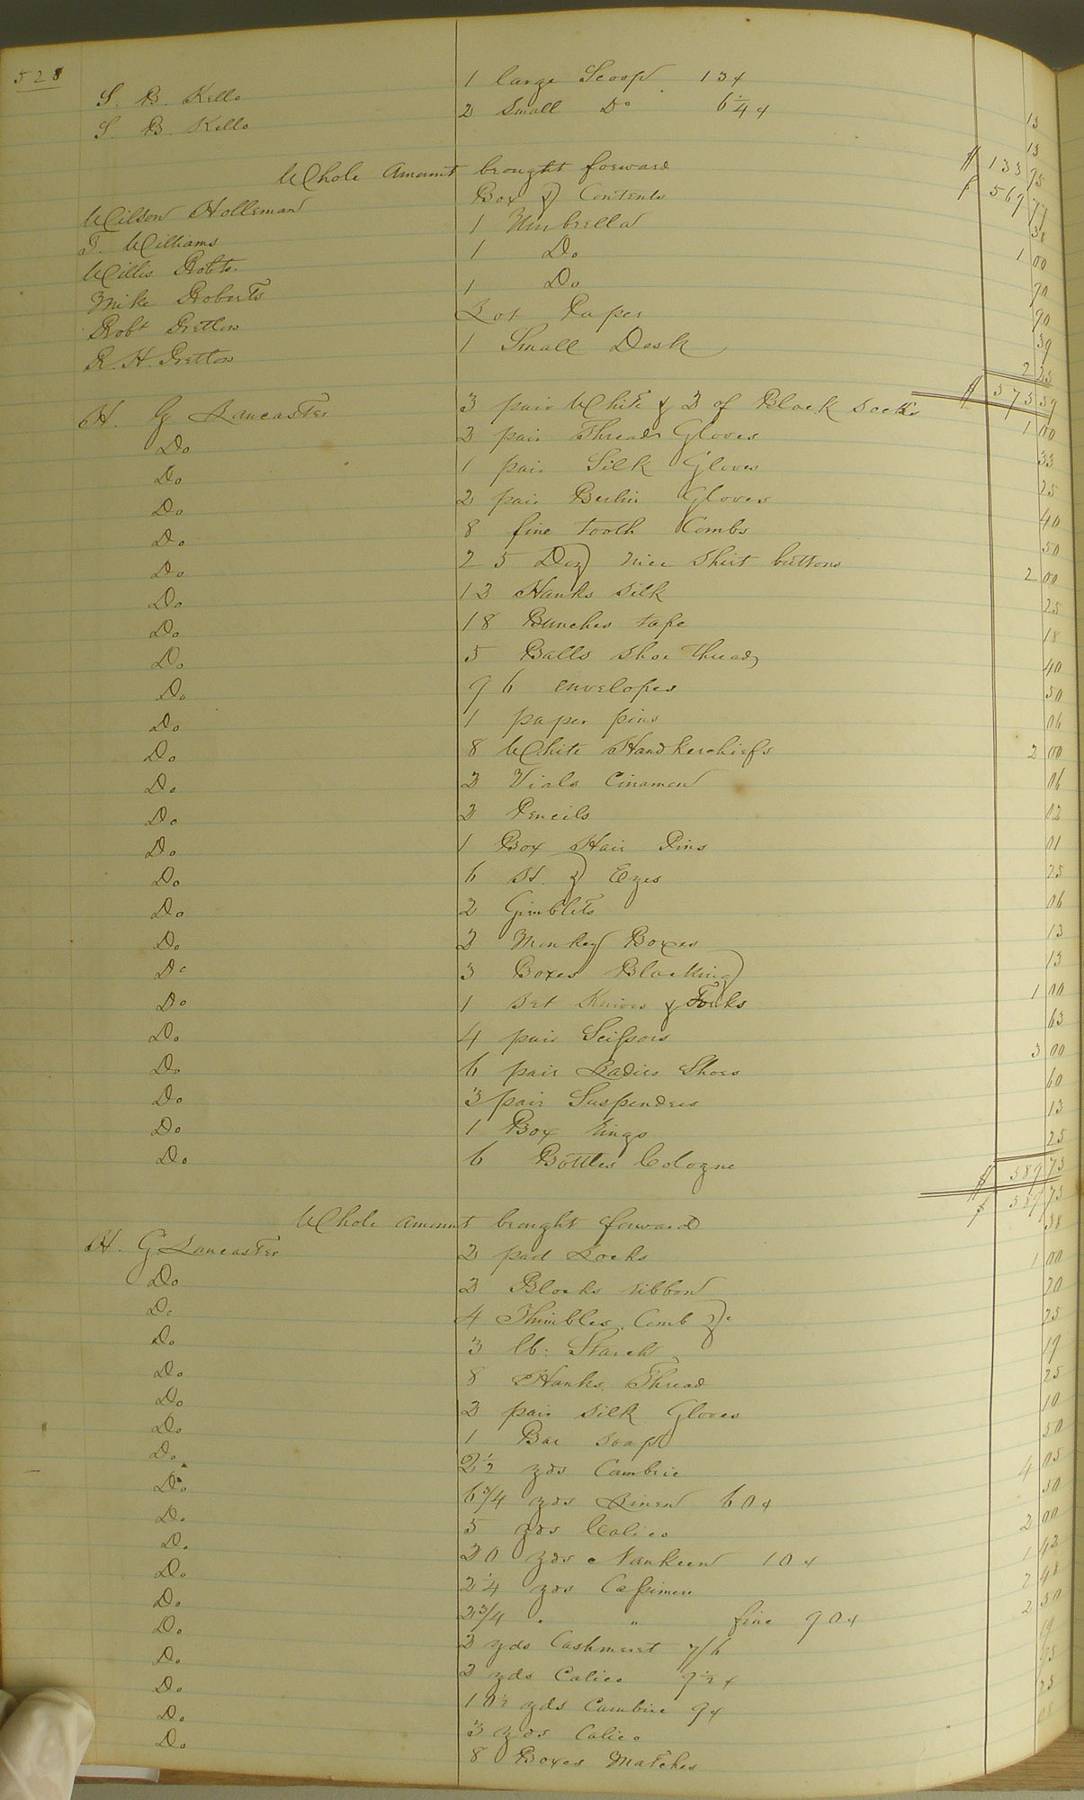 528
S. B. Kello 1 large Scoop 13¢ 13
S. B. Kello 2 Small Do 6¼¢ 13
$ 133 95
Whole Amount brought forward $ 569 77
Wilson Holleman Box & Contents 38
T. Williams 1 Umbrella 1 00
Willis Robts. 1 Do 90
Mike Roberts 1 Do 90
Robt Pretlow Lot Paper 39
R. H. Pretlow 1 Small Desk 2 25
$ 575 59
H. G Lancaster 3 pair White & 3 of Black socks 1 00
Do 3 pair Thread Gloves 33
Do 1 pair Silk Gloves 25
Do 2 pair Berlin Gloves 40
Do 8 fine tooth Combs 50
Do 25 Doz nice Shirt buttons 2 00
Do 13 Hanks silk 25
Do 18 Bunches tape 18
Do 5 Balls shoe thread 40
Do 96 envelopes 50
Do 1 paper pins 06
Do 8 White Handkerchiefs 2 00
Do 3 Vials Cinamon 06
Do 3 Pencils 02
Do 1 Box Hair Pins 01
Do 6 H. & Eyes 25
Do 2 Gimblets 06
Do 2 Monkey Boxes 13
Do 3 Boxes Blacking 13
Do 1 set Knives & Forks 1 00
Do 4 pair Scissors 63
Do 6 pair Ladies Shoes 3 00
Do 3 pair Suspenders 60
Do 1 Box Rings 13
Do 6 Bottles Cologne 25
$ 589 73
Whole amount brought forward $ 589 73
H. G Lancaster 2 pad Locks 38
Do 3 Blocks ribbon 1 00
Do 4 Thimbles, Comb &c 20
Do 3 lb: Starch 25
Do 8 Hanks Thread 19
Do 3 pair silk Gloves 25
Do 1 Bar soap 10
Do 2½ yds Cambric 50
Do 6¾ yds Linen 60¢ 4 05
Do 5 yds Calico 50
Do 20 yds Nankeen 10¢ 2 00
Do 2¼ yds Cassimere 1 42
Do 2¾ " " fine 90¢ 2 48
Do 3 yds Cashmeret 7/6 2 50
Do 2 yds Calico 9½¢ 19
Do 10½ yds Cambric 9¢
Do 3 yds Calico
Do 8 Boxes Matches